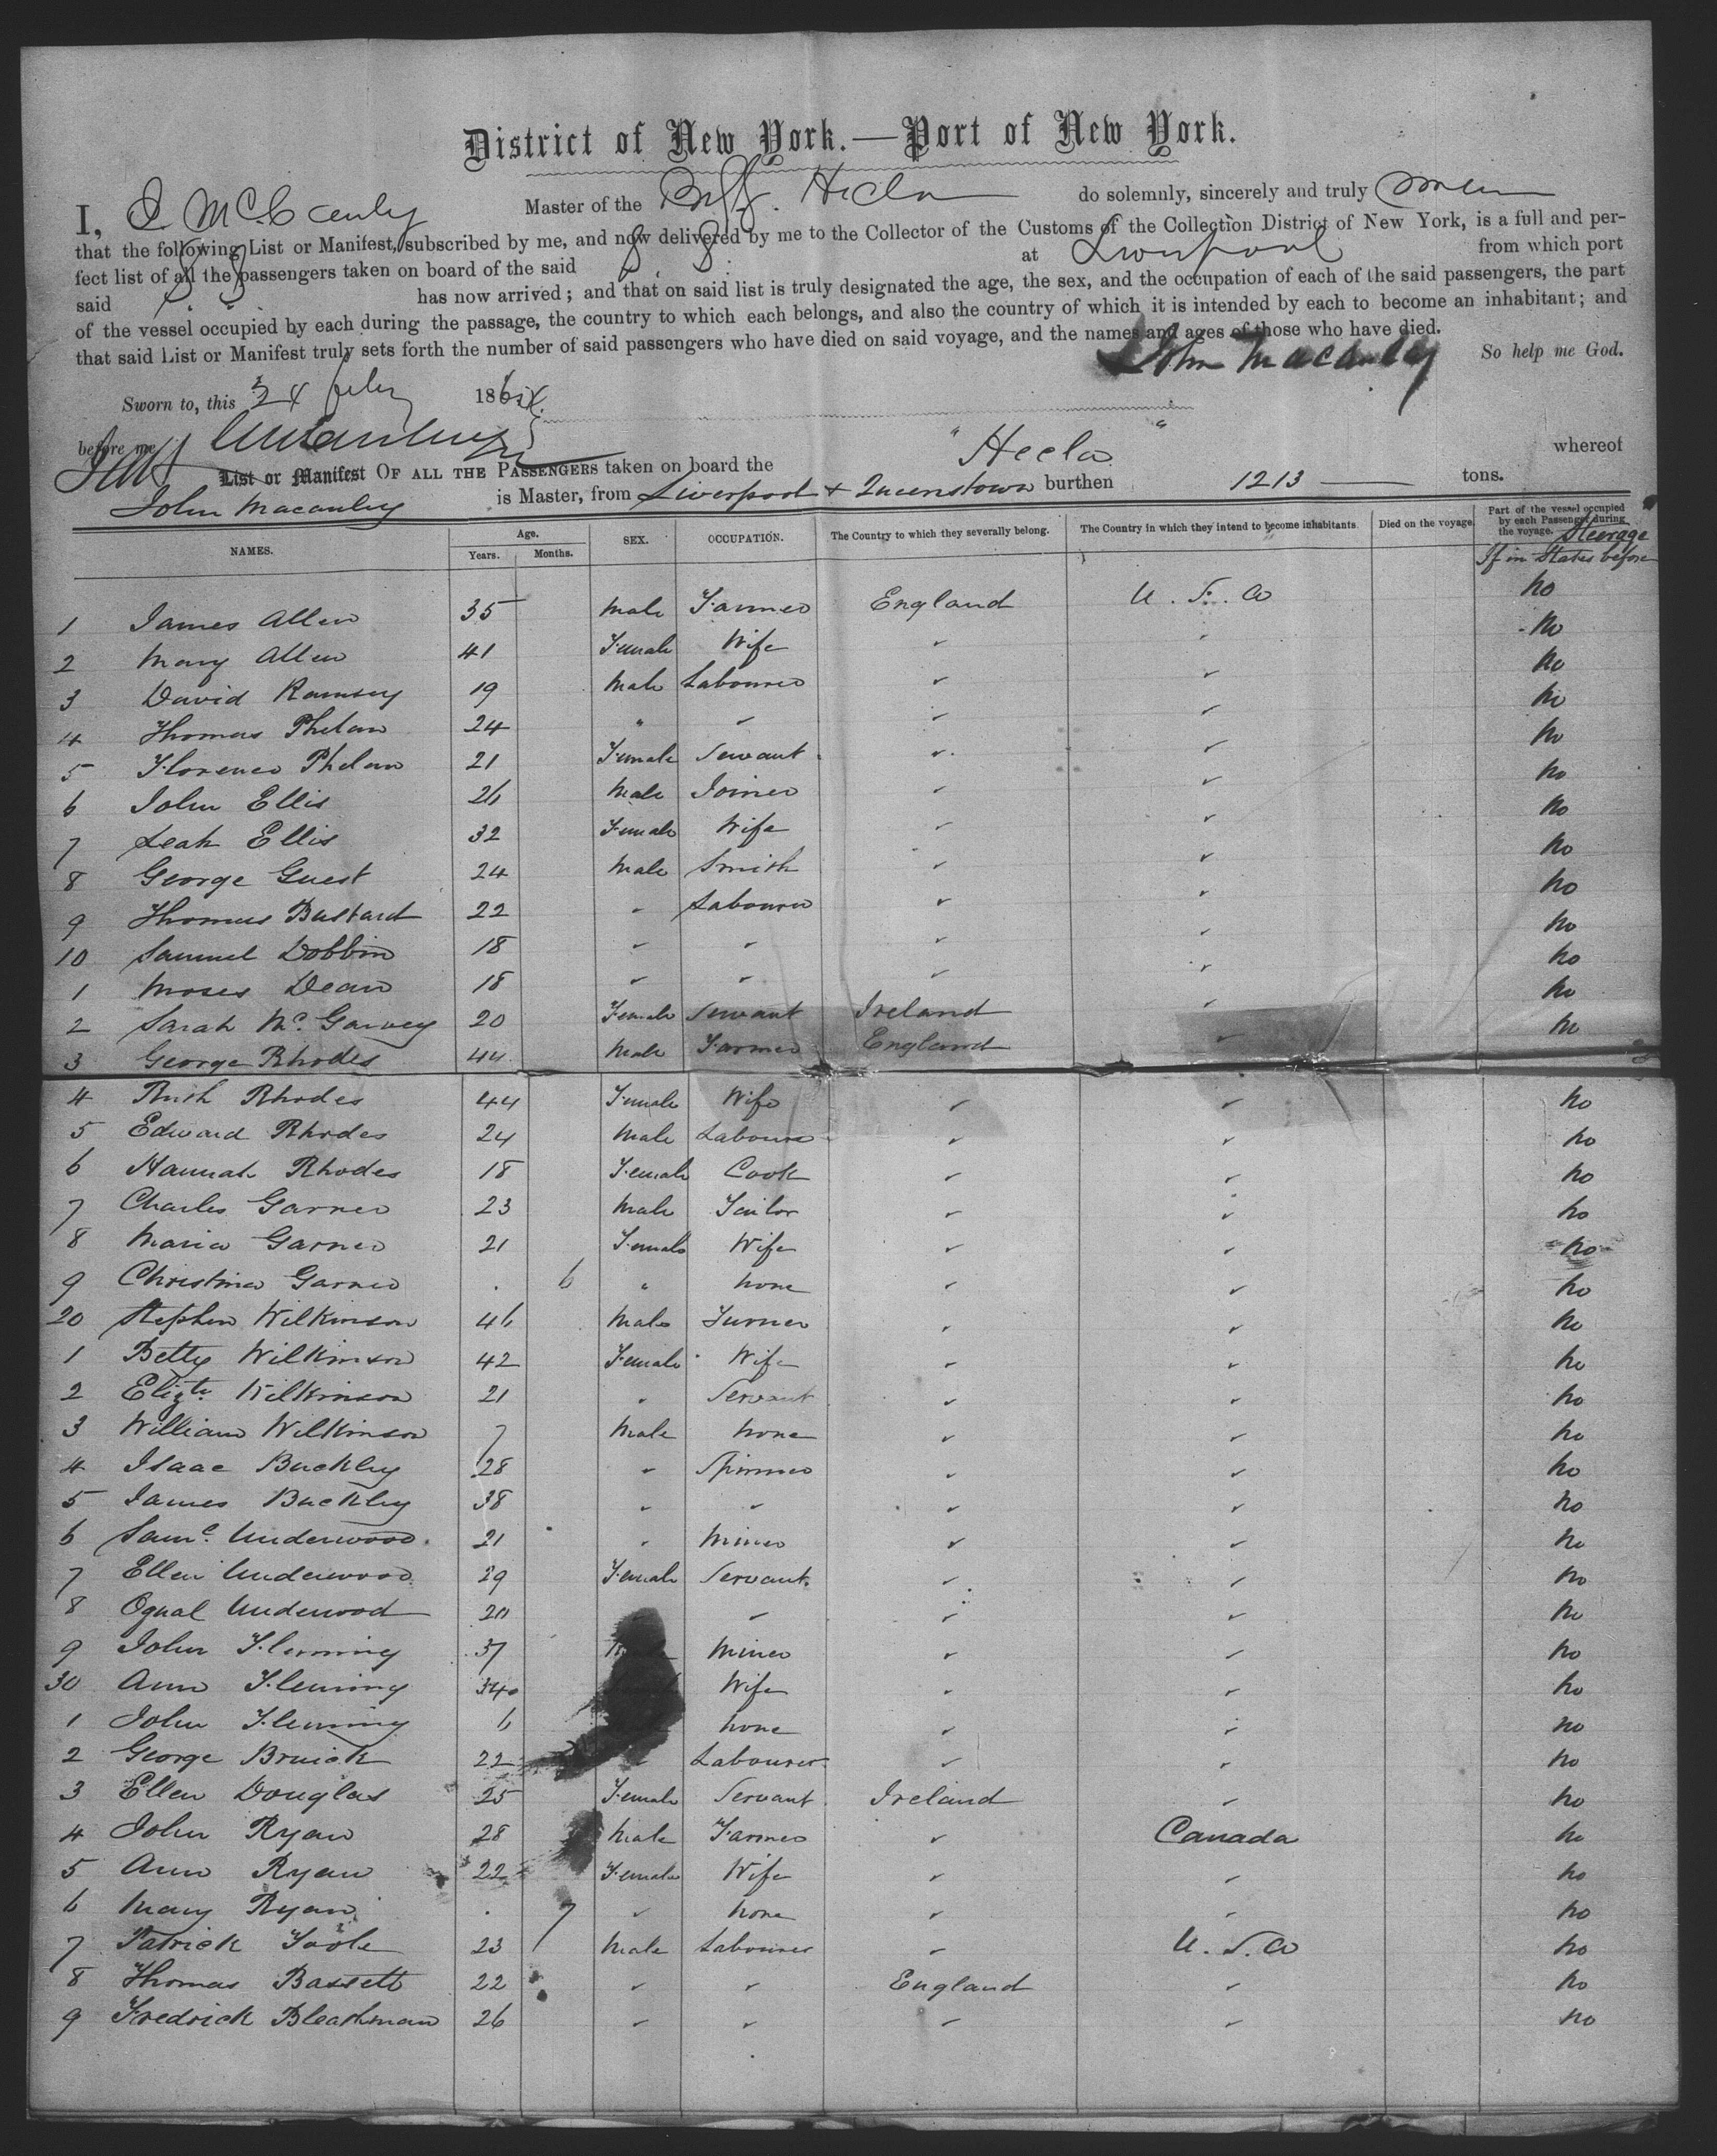 District of New York.—Port of New York.
I, J McCauly Master of the Hecla do solemnly, sincerely and truly
that the following List or Manifest, subscribed by me, and now delivered by me to the Collector of the Customs of the Collection District of New York, is a full and per-
fect list of all the passengers taken on board of the said S. S. at Liverpool from which port
said S. S. has now arrived; and that on said list is truly designated the age, the sex, and the occupation of each of the said passengers, the part
of the vessel occupied by each during the passage, the country to which each belongs, and also the country of which it is intended by each to become an inhabitant; and
that said List or Manifest truly sets forth the number of said passengers who have died on said voyage, and the names and ages of those who have died.
John Macaulay So help me God.
Sworn to, this 24 July 186
before me
List or Manifest OF ALL THE PASSENGERS taken on board the "Hecla" whereof
John Macaulay is Master, from Liverpool & Queenstown burthen 1213 tons.
NAMES. Age. Years. Months. SEX. OCCUPATION. The Country to which they severally belong. The Country in which they intend to become inhabitants Died on the voyage. Part of the vessel occupied by each Passenger during the voyage. Steerage
If in States before
1 James Allen 35 Male Farmer England U.S.A No
2 Mary Allen 41 Female Wife " " No
3 David Ramsey 19 Male Labourer " " No
4 Thomas Phelan 24 " " " " No
5 Florence Phelan 21 Female Servant " " No
6 John Ellis 26 Male Joiner " " No
7 Leah Ellis 32 Female Wife " " No
8 George Guest 24 Male Smith " " No
9 Thomas Bustard 22 " Labourer " " No
10 Samuel Dobbin 18 " " " " No
1 Moses Dean 18 " " " " No
2 Sarah McGarvey 20 Female Servant Ireland " No
3 George Rhodes 44 Male Farmer England " No
4 Ruth Rhodes 44 Female Wife " " No
5 Edward Rhodes 24 Male Labourer " " No
6 Hannah Rhodes 18 Female Cook " " No
7 Charles Garner 23 Male Tailor " " No
8 Maria Garner 21 Female Wife " " No
9 Christina Garner . 6 " None " " No
20 Stephen Wilkinson 46 Male Turner " " No
1 Betty Wilkinson 42 Female Wife " " No
2 Elizth Wilkinson 21 " Servant " " No
3 William Wilkinson 7 Male None " " No
4 Isaac Buckley 28 " Spinner " " No
5 James Buckley 38 " " " " No
6 Saml. Underwood 21 " Miner " " No
7 Ellen Underwood 29 Female Servant " " No
8 Underwood 20 " " " No
9 John Fleming 37 Miner " " No
30 Ann Fleming 34 Wife " " No
1 John Fleming 6 None " " No
2 George Bruick 22 " Labourer " " No
3 Ellen Douglas 25 Female Servant Ireland " No
4 John Ryan 28 Male Farmer " Canada No
5 Ann Ryan 22 Female Wife " " No
6 Mary Ryan . 7 " None " " No
7 Patrick Toole 23 Male Labourer " U.S.A No
8 Thomas Bassett 22 " " England " No
9 Fredrick Bleathman 26 " " " " No